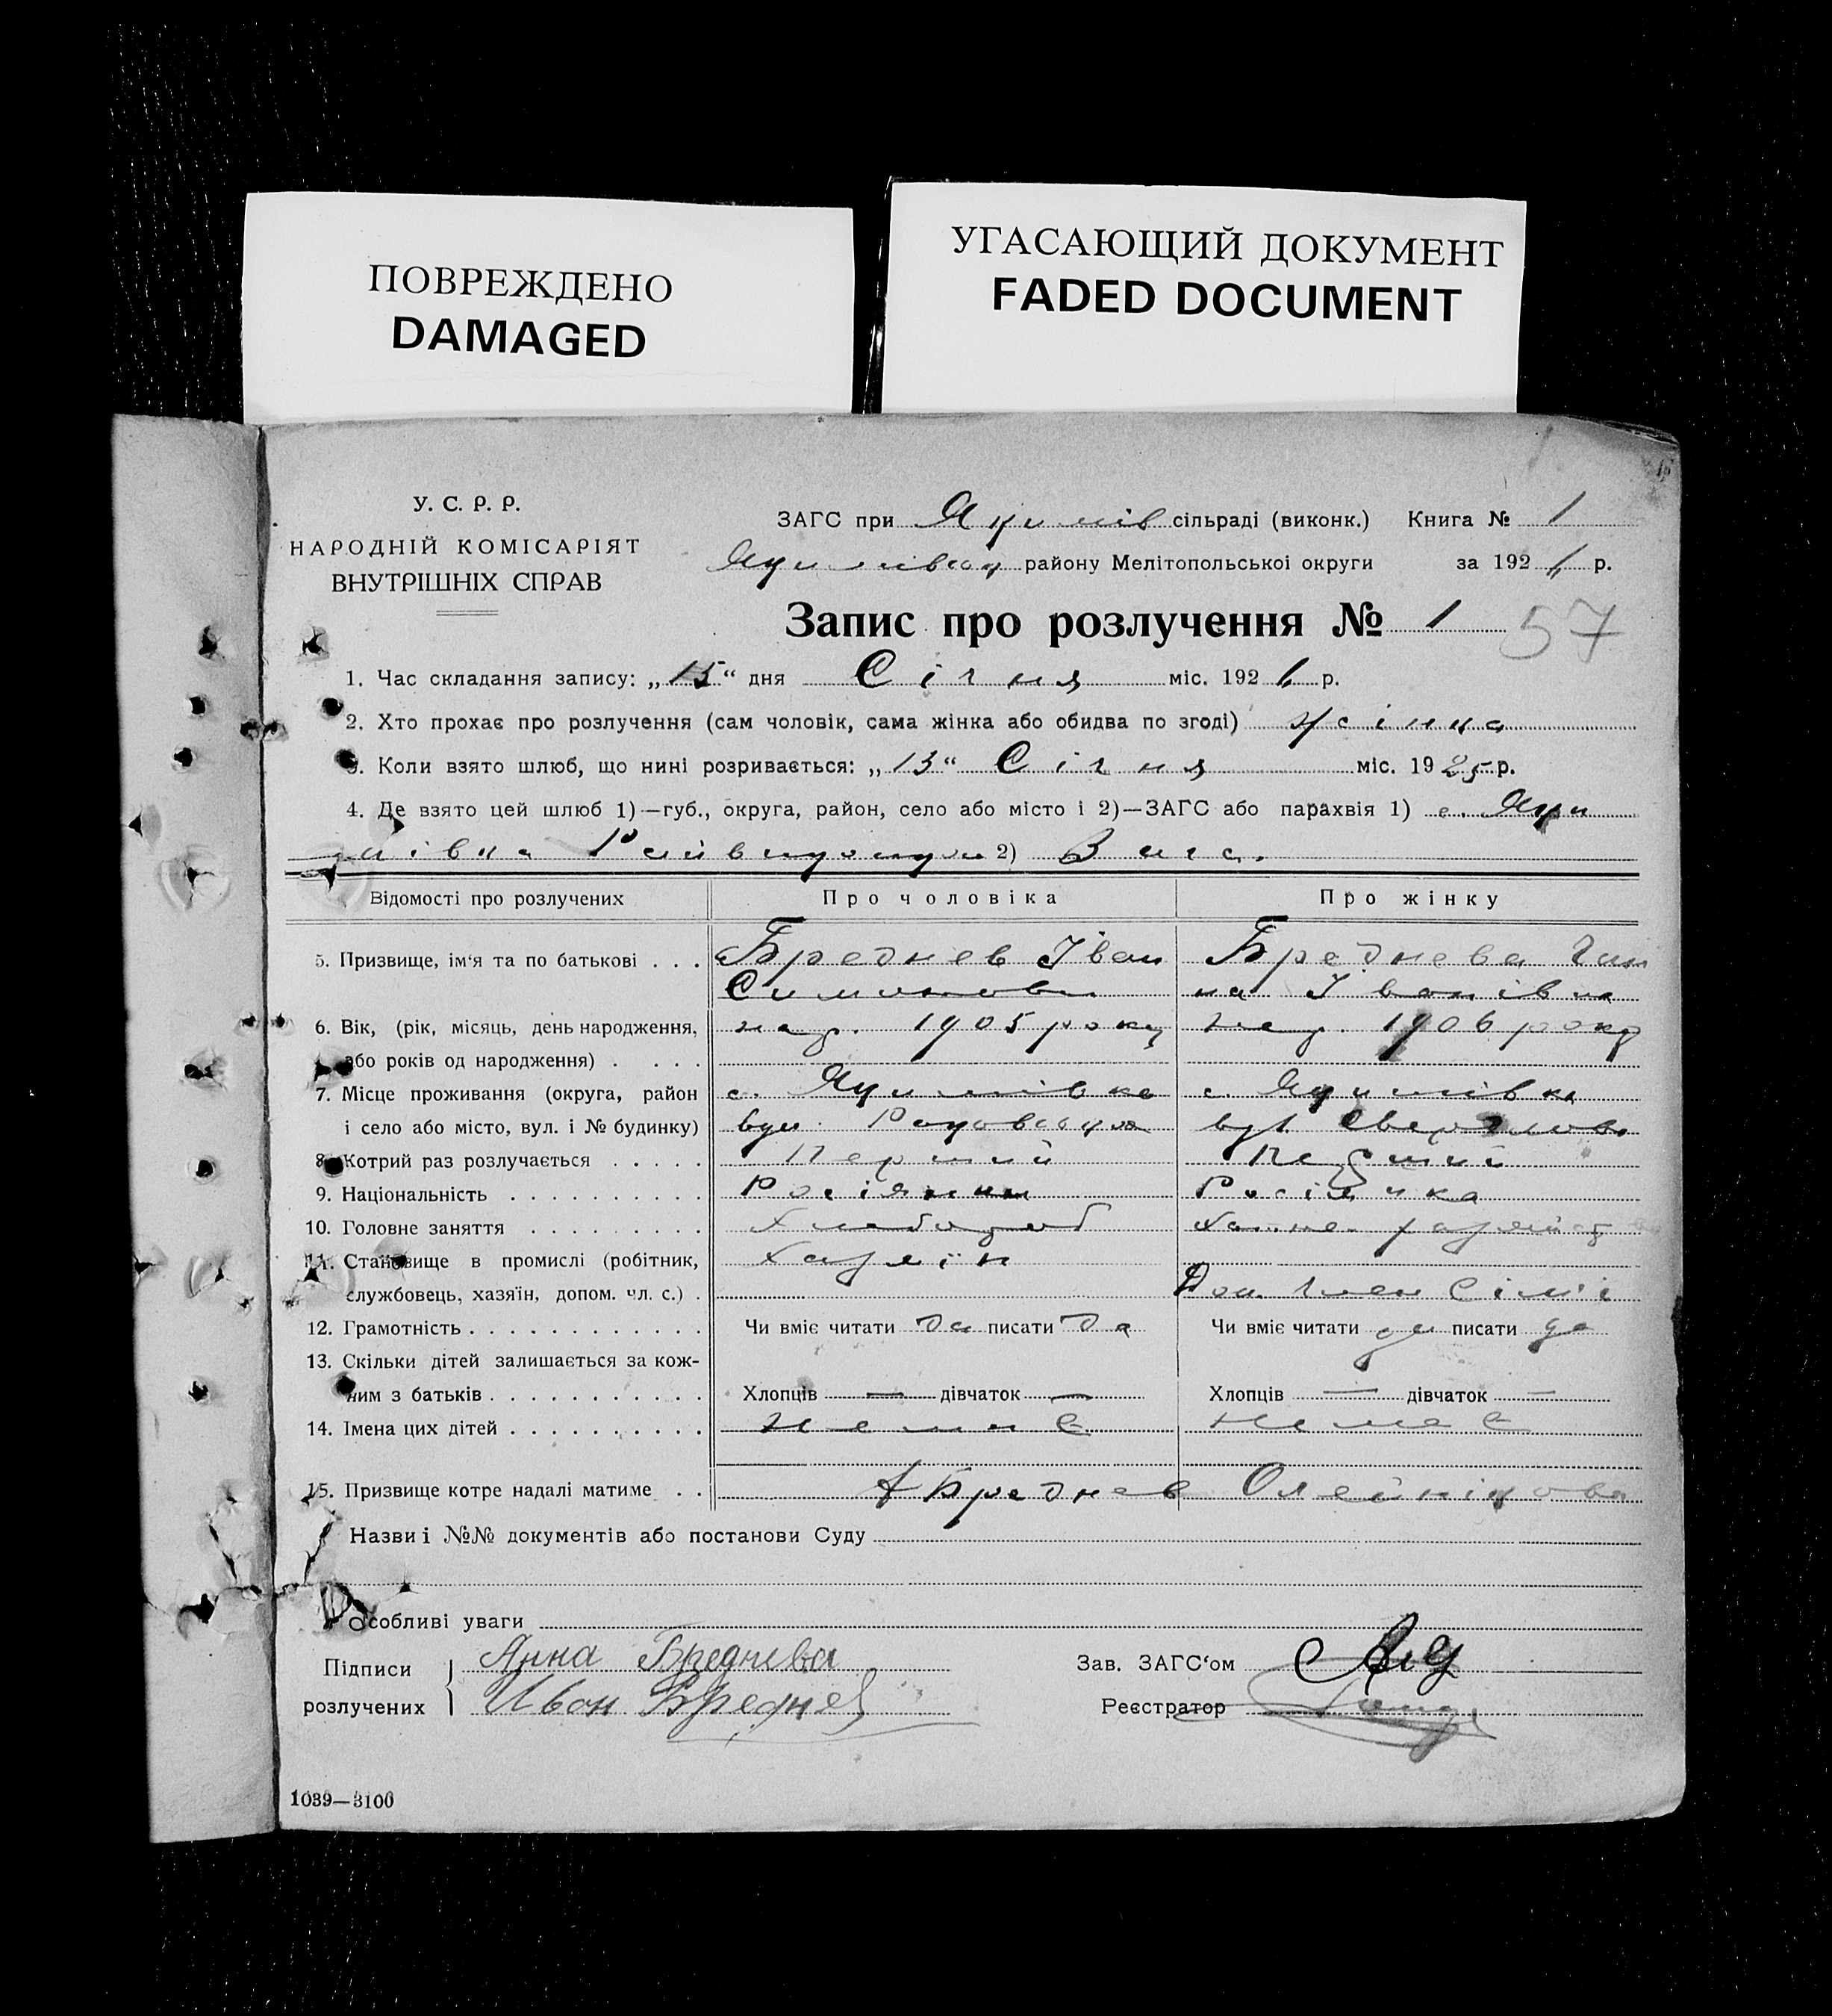 ПОВРЕЖДЕНО
DAMAGED
УГАСАЮЩИЙ ДОКУМЕНТ
FADED DOCUMENT
У. С. Р. Р.
НАРОДНІЙ КОМІСАРІЯТ
ВНУТРІШНІХ СПРАВ
ЗАГС при Якимів сільраді (виконк.) Книга № 1
району Мелітопольської округи за 1926 р.
Запис про розлучення № 1 57
1. Час складання запису: „15“ дня Січня міс. 1926 р.
2. Хто прохає про розлучення (сам чоловік, сама жінка або обидва по згоді) жінка
3. Коли взято шлюб, що нині розривається: „13“ Січня міс. 1925 р.
4. Де взято цей шлюб 1)—губ., округа, район, село або місто і 2)—ЗАГС або парахвія 1) с. Яки
мівка 2) Загс.
Відомості про розлучених Про чоловіка Про жінку
5. Призвище, ім‘я та по батькові . . . Бреднев Іван Бреднева Ган
Симонови на Іванівна
6. Вік, (рік, місяць, день народження, нар. 1905 року нар. 1906 року
або років од народження) . . . .
7. Місце проживання (округа, район с. Якимівка с. Якимівка
і село або місто, вул. і № будинку) вул. вул Свердлова
8. Котрий раз розлучається . . . . . Перший Перший
9. Національність . . . . . . . . . . Росіянин Росіянка
10. Головне заняття . . . . . . . . . Хлебороб
11. Становище в промислі (робітник, Хазяїн
службовець, хазяїн, допом. чл. с.) . Доп. член сім'ї
12. Грамотність . . . . . . . . . . . . Чи вміє читати да писати да Чи вміє читати да писати да
13. Скільки дітей залишається за кож-
ним з батьків . . . . . . . . . . . Хлопців — дівчаток — Хлопців — дівчаток —
14. Імена цих дітей . . . . . . . . . . немає немає
15. Призвище котре надалі матиме . . Бреднев Олейнікова
Назви і №№ документів або постанови Суду
Особливі уваги
Підписи Анна Бреднева Зав. ЗАГС‘ом
розлучених Иван Бреднев Реєстратор
1039—3100